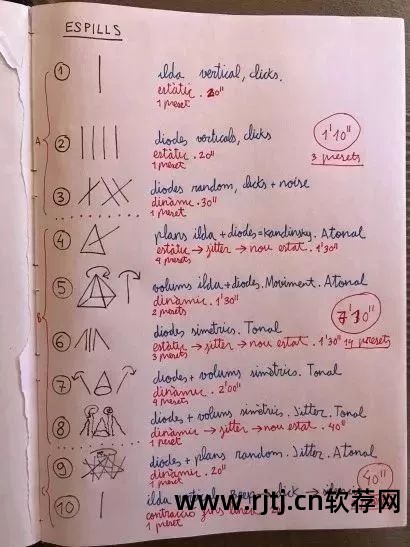 ESPILLS
1 ilda vertical, clicks.
estàtic . 20"
1 preset
2 diodes verticals, clicks
estàtic . 20"
1 preset
1'10"
3 presets
A
3 diodes random, clicks + noise
dinàmic . 30"
1 preset
4 plans ilda + diodes = Kandinsky. Atonal
estàtic → jitter → nou estat . 1'30"
4 presets
5 volums ilda + diodes. Moviment. Atonal
dinàmic . 1'30"
2 presets
7'30"
14 presets
B
6 diodes simètrics. Tonal
estàtic → jitter → nou estat . 1'30"
3 presets
7 diodes + volums simètrics. Tonal
dinàmic . 2'00"
4 presets
8 diodes + volums simètrics. Jitter. Tonal
dinàmic → jitter → nou estat . 40"
1 preset
9 diodes + plans random. Jitter. Atonal
dinàmic . 20"
1 preset
40"
C
10 ilda
www.rjtj.cn软荐网
1 preset